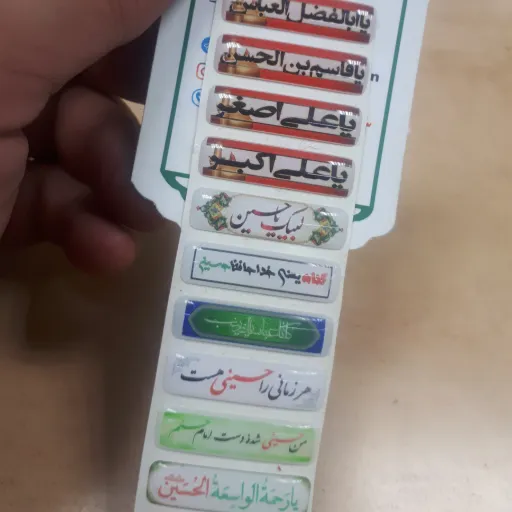 یا اباالفضل العباس
یا قاسم بن الحسن
یا علی اصغر
یا علی اکبر
لبیک یا حسین
گناه یعنی خداحافظ حسین
هر زمانی را حسینی هست
من حسینی شده دست امام حسنم
یا رحمة الواسعة الحسین